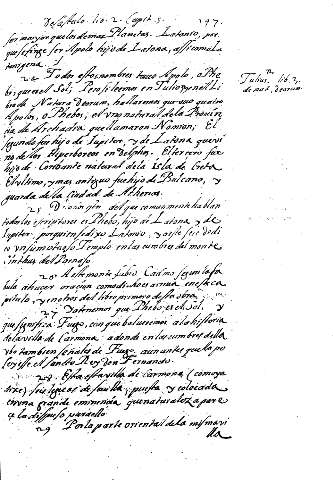 lib. 2. Capit. 5. 197.
ser mayor que los demas Planetas. Latonio, por
que se finge ser Apolo hijo de Latona, assi como La
24 Todos estos nombres tuvo Apolo, o Phe
bo, que es el Sol; Pero si leemos en Tulio
de Natura deorum, hallaremos que uvo quatro
Apolos, o Phebos; el uno natural de la Provin
cia de Archadia que llamaron Nomion; El
segundo fue hijo de Jupiter, y de Latona que vi
no de los Hiperboreos en Delphis. El tercero fue
hijo de natural de la Isla de Creta
El ultimo, y mas antiguo fue hijo de Bulcano, y
guarda de la Ciudad de Athenas.
Tulius lib. 3.
de nat. deorum
25 del que comunmente hablan
todos los escriptores es Phebo, hijo de Latona, y de
Jupiter, por quien se dixo Latonio, y a este se le dedi
co un sumptuoso Templo en las cumbres del monte
del Parnaso.
26 A este monte subio Cadmo segun la fa
bula a hacer oracion como dicho es arriba en este ca
pitulo, y en otros del libro primero
27 Ya tenemos que Phebo es el Sol, y
que significa Fuego, con que bolvemos a la historia
de la villa de Carmona, adonde en las cumbres de lla
vbo tambien señales de Fuego, aun antes que la po
seyesse el sancto Rey don Fernando.
28 Esta esta villa de Carmona (como ya
dixe) seis leguas de sevilla, puesta y colocada
en una grande eminencia que naturaleza pare
ce la dispuso para ello
29 Por la parte oriental de la misma vi
lla